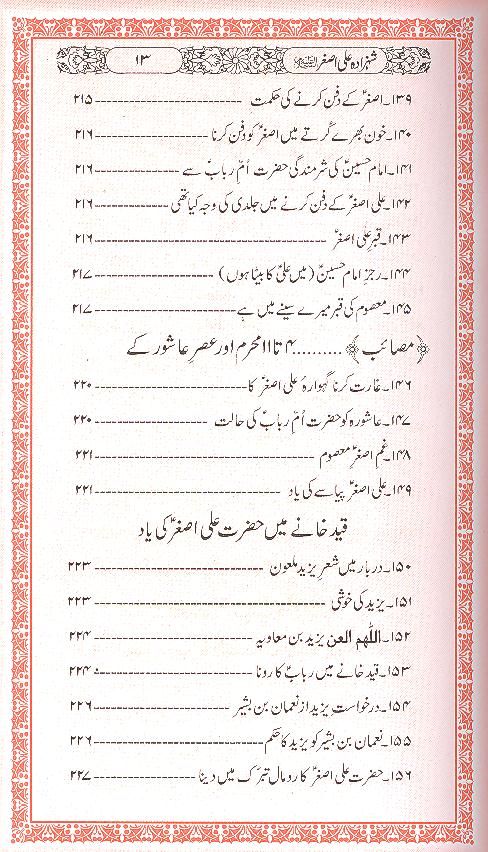 شہزادہ علی اصغرؑ ۱۳
۱۳۹۔اصغرؑ کے دفن کرنے کی حکمت ---------- ۲۱۵
۱۴۰۔خون بھرے کُرتے میں اصغرؑ کو دفن کرنا ---------- ۲۱۶
۱۴۱۔امام حسینؑ کی شرمندگی حضرت اُمّ ربابؑ سے ---------- ۲۱۶
۱۴۲۔علی اصغرؑ کے دفن کرنے میں جلدی کی وجہ کیا تھی ---------- ۲۱۶
۱۴۳۔قبرِ علی اصغرؑ ---------- ۲۱۶
۱۴۴۔رجزِ امام حسینؑ (میں علیؑ کا بیٹا ہوں) ---------- ۲۱۷
۱۴۵۔معصوم کی قبر میرے سینے میں ہے ---------- ۲۱۷
﴿مصائب﴾ ..........۴ تا ۱۱ محرم اور عصرِ عاشور کے
۱۴۶۔غارت کرنا گہوارۂ علی اصغرؑ کا ---------- ۲۲۰
۱۴۷۔عاشورہ کو حضرت اُمّ ربابؑ کی حالت ---------- ۲۲۰
۱۴۸۔غمِ اصغرِؑ معصوم ---------- ۲۲۱
۱۴۹۔علی اصغرؑ پیاسے کی یاد ---------- ۲۲۱
قید خانے میں حضرت علی اصغرؑ کی یاد
۱۵۰۔دربار میں شعرِ یزید ملعون ---------- ۲۲۳
۱۵۱۔یزید کی خوشی ---------- ۲۲۳
۱۵۲۔اللّٰھم العن یزید بن معاویہ ---------- ۲۲۴
۱۵۳۔قید خانے میں ربابؑ کا رونا ---------- ۲۲۴
۱۵۴۔درخواست یزید از نعمان بن بشیر ---------- ۲۲۶
۱۵۵۔نعمان بن بشیر کو یزید کا حکم ---------- ۲۲۶
۱۵۶۔حضرت علی اصغرؑ کا رومال تبرّک میں دینا ---------- ۲۲۷